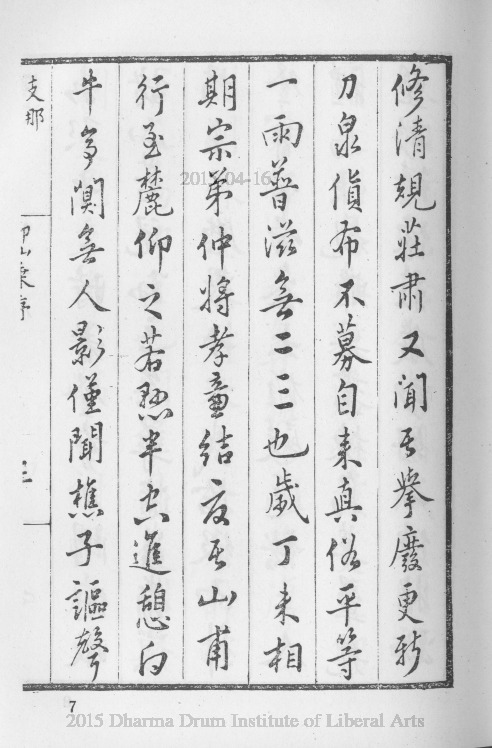 修清規莊肅又聞其舉廢更新
刀泉貨布不募自來真俗平等
一雨普滋無二三也歲丁未相
期宗弟仲將孝童結夏其山甫
行至麓仰之若懸半空進憩白
牛亭闃無人影僅聞樵子謳聲
支那
山乘序
三
7
2015-04-16
2015 Dharma Drum Institute of Liberal Arts